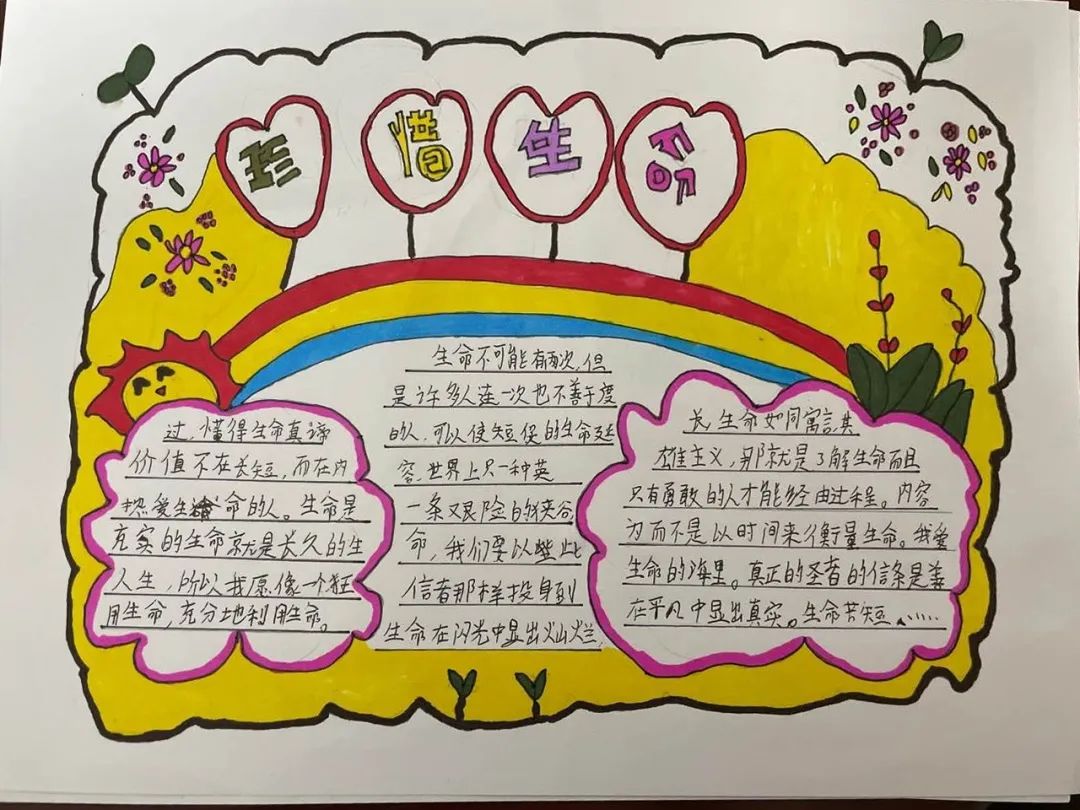 珍惜生命
过,懂得生命真谛
价值不在长短,而在内
热爱生命的人。生命是
充实的生命就是长久的生
人生,所以我愿像一个狂
用生命,充分地利用生命。
生命不可能有两次,但
是许多人连一次也不善于度
的人,可以使短促的生命延
容,世界上只一种英
一条艰险的狭谷
命,我们要以些此
信者那样投身到
生命在闪光中显出灿烂
长,生命如同寓言,其
雄主义,那就是了解生命而且
只有勇敢的人才能经由过程。内容
为而不是以时间来衡量生命。我爱
生命的海里。真正的圣者的信条是善
在平凡中显出真实。生命苦短,……